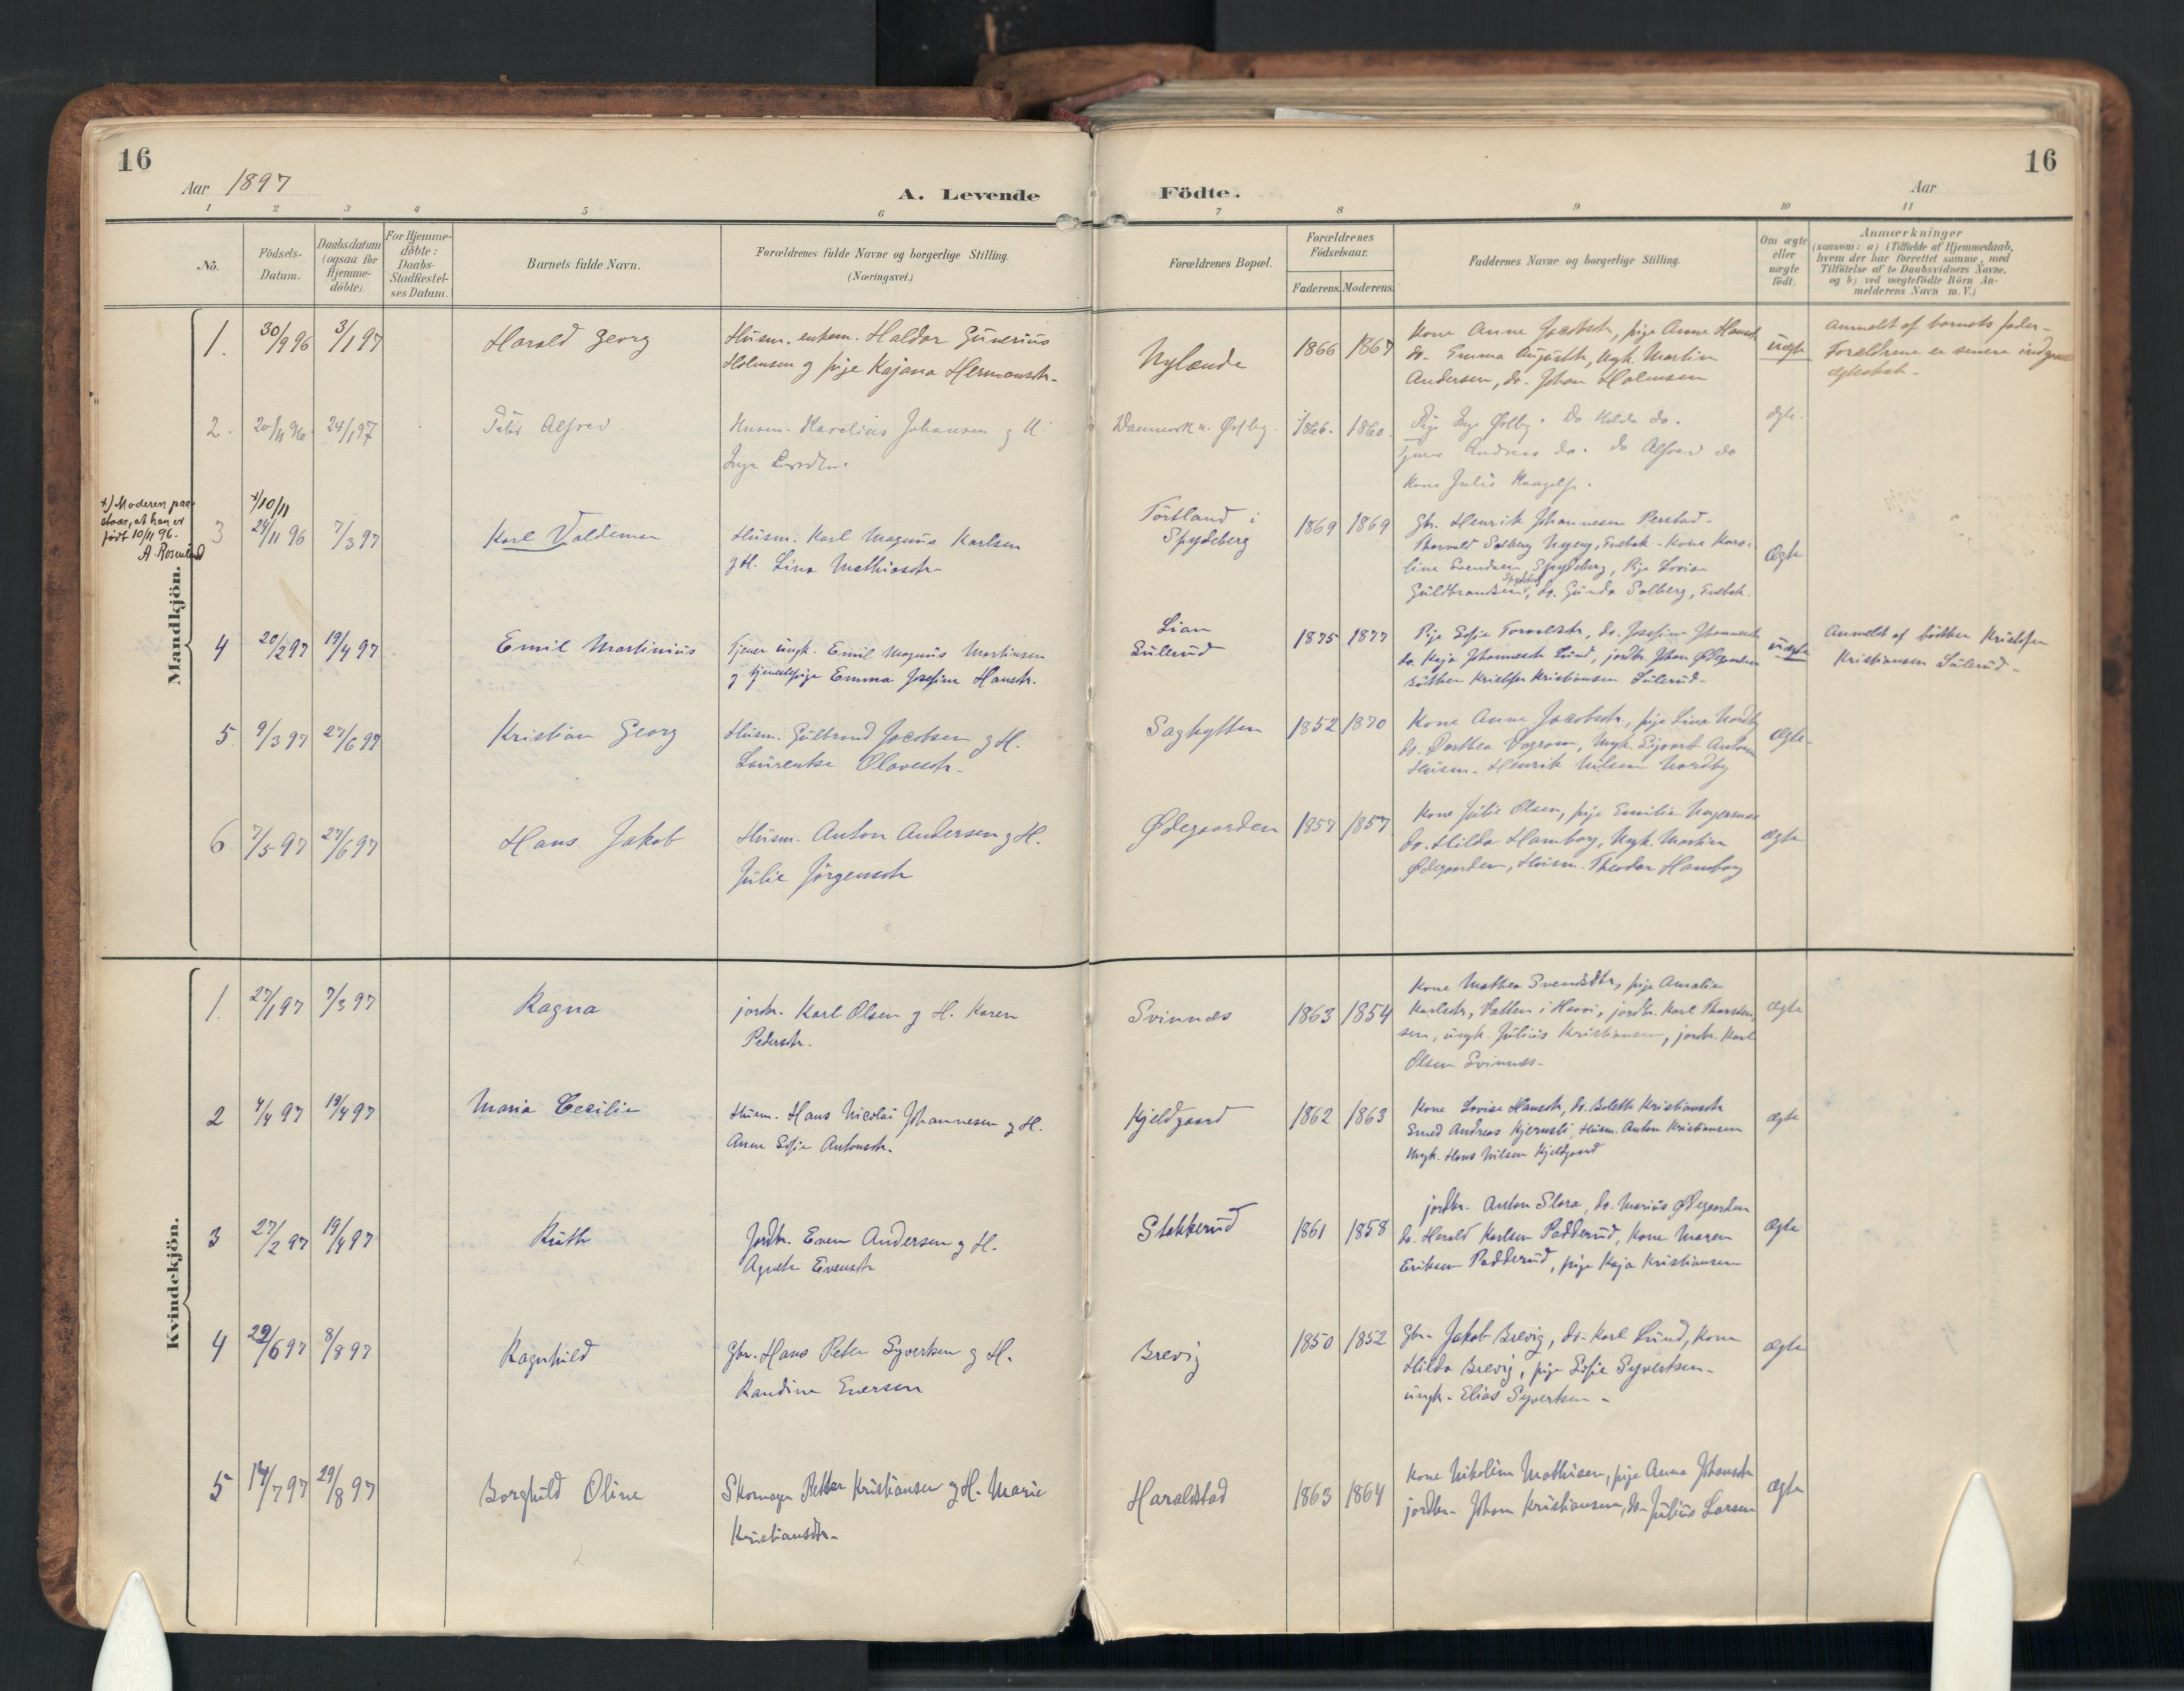 16
Aar 1897
A. Levende
1 2 3 4 5 6
No.
Födsels-
Datum.
Daabsdatum
(ogsaa for
Hjemme-
döbte)
For Hjemme-
döbte:
Daabs-
Stadfæstel-
ses Datum.
Barnets fulde Navn.
Forældrenes fulde Navne og borgerlige Stilling.
(Næringsvei.)
16
Aar
Födte.
7 8 9 10 11
Forældrenes Bopæl.
Forældrenes
Födselsaar.
Faderens. Moderens.
Faddernes Navne og borgerlige Stilling.
Om ægte
eller
uægte
födt.
Anmærkninger
(saasom: a) i Tilfælde af Hjemmedaab,
hvem der har forrettet samme, med
Tilföielse af to Daabsvidners Navne,
og b) ved uægtefödte Börn An-
melderens Navn m. V.)
Mandkjön.
1. 30/9 96 3/1 97 Harald Georg
Husm. enkem. Haldor Gunerius
Holmsen og pige Kajana Hermansdtr.
Nylænde 1866 1867
Kone Anne Jacobsdtr, pige Anne Hansdtr
do. Emma Augustdtr, Ungk. Martin
Andersen, do. Johan Holmsen
uægte
Anmeldt af barnets fader.
Forældrene er senere indgaaet
ægteskab.
2. 20/11 96. 24/1 97 Peter Alfred.
Husm. Karelius Johansen og H.
Inga
1866. 1860.
do Alfred do
Kone Julie
ægte.
x) Moderen paa-
staar, at han er
født 10/11 96.
A. Rosenlund
3 x/10/11
24/11 96 7/3 97 Karl Valdemar
Husm. Karl Magnus Karlsen
og H. Lina Mathiasdtr
Törtland i
Spydeberg
1869 1869
Gbr. Henrik Johannesen Perstad.
Thorvald Solberg Nyeng, Enebak. Kone Karo-
line Svendsen, Spydeberg, Pige Lovise
Guldbrandsen, Spydeberg, do. Gunda Solberg, Enebak.
Ægte
4 20/2 97 19/4 97 Emil Martinius
Tjener ungk. Emil Magnus Martinsen
og tjenestepige Emma Josefine Hansdtr.
Lian
Sulerud
1875 1877
Pige Sofie Torvaldsdtr, do. Josefine Johannesdtr
do. Kaja Johannesdtr Lund, jordbr. Johan Ødegaarden
Kristofer Kristiansen Sulerud.
uægte
Anmeldt af Kristofer
Kristiansen Sulerud.
5. 9/3 97 27/6 97 Kristian Georg
Husm. Gulbrand Jacobsen og H.
Laurentse Olavesdtr.
Saghytten 1852 1870
Kone Anne Jacobsdtr, pige Lina Nordby
do. Dorthea, Ungk. Anton
Husm. Henrik Nilsen Nordby
Ægte.
6 7/5 97 27/6 97 Hans Jakob
Husm. Anton Andersen og H.
Julie Jörgensdtr
Ødegaarden 1857 1857
Kone Julie Olsen, pige Emilie
do. Hilda Hamborg, Ungk. Martin
Ødegaarden, Husm. Theodor Hamborg
Ægte
Kvindekjön.
1. 27/1 97 7/3 97 Ragna
jordbr. Karl Olsen og H. Karen
Pedersdtr.
Svinnæs 1863 1854
Kone Mathea Svendsdtr, pige Amalie
Karlsdtr, jordbr. Karl Thorsten-
sen, ungk. Julius Kristiansen, jordbr. Karl
Olsen Svinnæs.
Ægte
2 4/4 97 19/4 97 Maria Cecilie
Husm. Hans Nicolai Johannesen og H.
Anne Sofie Antonsdtr.
Kjeldgaard 1862 1863
Kone Lovise Hansdtr, do. Bolette Kristiansdtr
Smed Andreas Kjernsli, Husm. Anton Kristiansen
Ungk. Hans Nilsen Kjeldgaard
Ægte
3 27/2 97 19/4 97 Ruth
Jordbr. Even Andersen og H.
Agnete Evensdtr
Stokkerud 1861 1858
jordbr. Anton Slora, do. Marius Ødegaarden
do. Harald Karlsen Padderud, Kone Maren
Eriksen Padderud, pige Kaja Kristiansen
Ægte
4 29/6 97 8/8 97 Ragnhild
Gbr. Hans Peter Syvertsen og H.
Randine Eversen
Brevig 1850 1852
Gbr. Jakob Brevig, do. Karl Lund, Kone
Hilda Brevig, pige Sofie Syvertsen.
ungk. Elias Syvertsen.
Ægte
5 14/7 97 29/8 97 Borghild Oline
Skomager Petter Kristiansen og H. Marie
Kristiansdtr.
Haraldstad 1863 1864
Kone Nikoline Mathisen, pige Anna Johansdtr
jordbr. Johan Kristiansen, do. Julius Larsen
Ægte